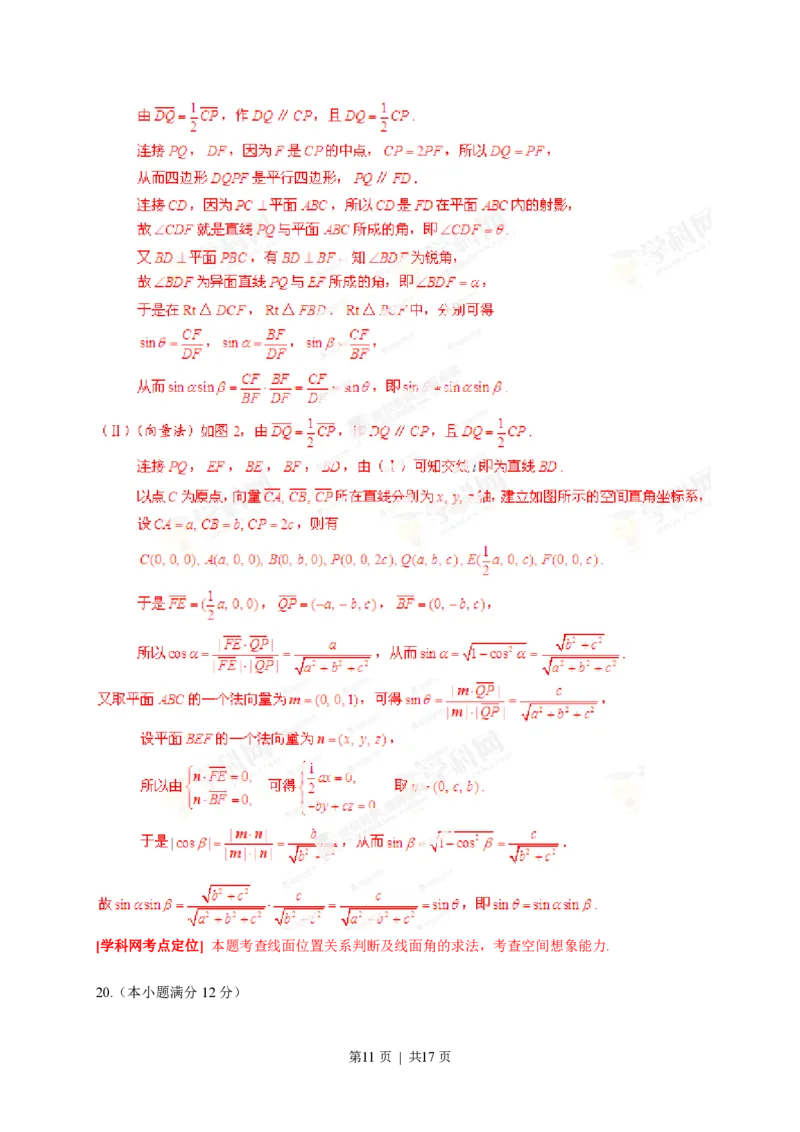 由DQ=1/2 CP,作DQ∥CP,且DQ=1/2 CP.
连接PQ,DF,因为F是CP的中点,CP=2PF,所以DQ=PF,
从而四边形DQPF是平行四边形,PQ∥FD.
连接CD,因为PC⊥平面ABC,所以CD是FD在平面ABC内的射影,
故∠CDF就是直线PQ与平面ABC所成的角,即∠CDF=θ.
又BD⊥平面PBC,有BD⊥BF,知∠BDF为锐角,
故∠BDF为异面直线PQ与EF所成的角,即∠BDF=α,
于是在Rt△DCF,Rt△FBD,Rt△BCF中,分别可得
sinθ=CF/DF,sinα=BF/DF,sinβ=CF/BF,
从而sinαsinβ=CF/BF·BF/DF=CF/DF=sinθ,即sinθ=sinαsinβ.
(Ⅱ)(向量法)如图2,由DQ=1/2 CP,作DQ∥CP,且DQ=1/2 CP.
连接PQ,EF,BE,BF,BD,由(Ⅰ)可知交线l即为直线BD.
以点C为原点,向量CA,CB,CP所在直线分别为x,y,z轴,建立如图所示的空间直角坐标系,
设CA=a,CB=b,CP=2c,则有
C(0,0,0),A(a,0,0),B(0,b,0),P(0,0,2c),Q(a,b,c),E(1/2 a,0,c),F(0,0,c).
于是FE=(1/2 a,0,0),QP=(-a,-b,c),BF=(0,-b,c),
所以cosα=|FE·QP|/(|FE|·|QP|)=a/√(a²+b²+c²),从而sinα=√(1-cos²α)=√(b²+c²)/√(a²+b²+c²).
又取平面ABC的一个法向量为m=(0,0,1),可得sinθ=|m·QP|/(|m|·|QP|)=c/√(a²+b²+c²),
设平面BEF的一个法向量为n=(x,y,z),
所以由{n·FE=0, n·BF=0, 可得{1/2 ax=0, -by+cz=0 取n=(0,c,b).
于是|cosβ|=|m·n|/(|m|·|n|)=b/√(b²+c²),从而sinβ=√(1-cos²β)=c/√(b²+c²).
故sinαsinβ=√(b²+c²)/√(a²+b²+c²)·c/√(b²+c²)=c/√(a²+b²+c²)=sinθ,即sinθ=sinαsinβ.
[学科网考点定位] 本题考查线面位置关系判断及线面角的求法,考查空间想象能力.
20.(本小题满分12分)
第11页 | 共17页